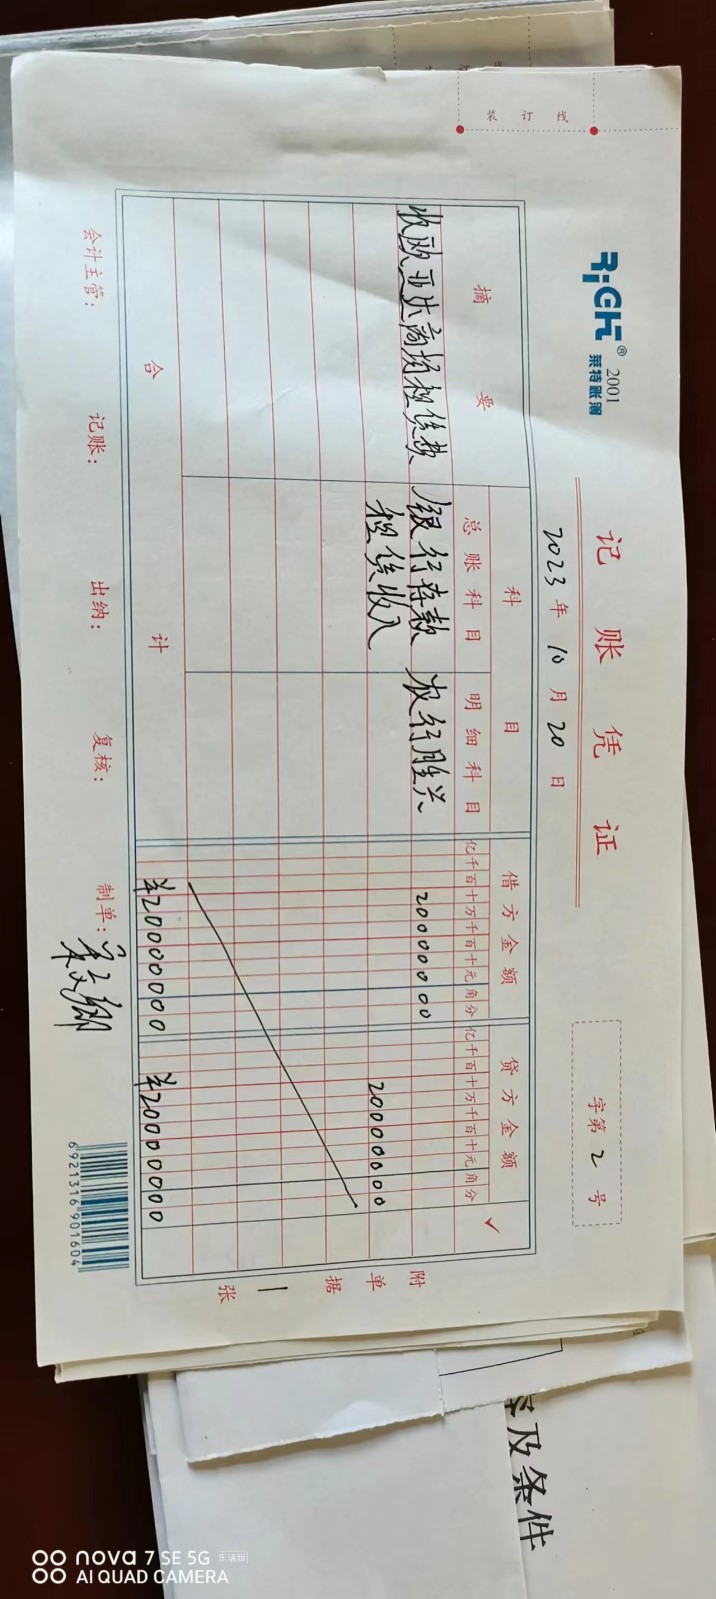 装 订 线
RiGHT® 2001
莱特账簿
记 账 凭 证
2023 年 10 月 20 日
字第 2 号
摘 要
科 目
借 方 金 额
贷 方 金 额
✓
总 账 科 目
明 细 科 目
亿千百十万千百十元角分
亿千百十万千百十元角分
收欧亚达商场租赁款
银行存款
农行胜兴
20000000
租赁收入
20000000
合 计
¥20000000
¥20000000
附 单 据 1 张
会计主管:
记账:
出纳:
复核:
制单:
6921316901604
及条件
nova 7 SE 5G 乐活版
AI QUAD CAMERA